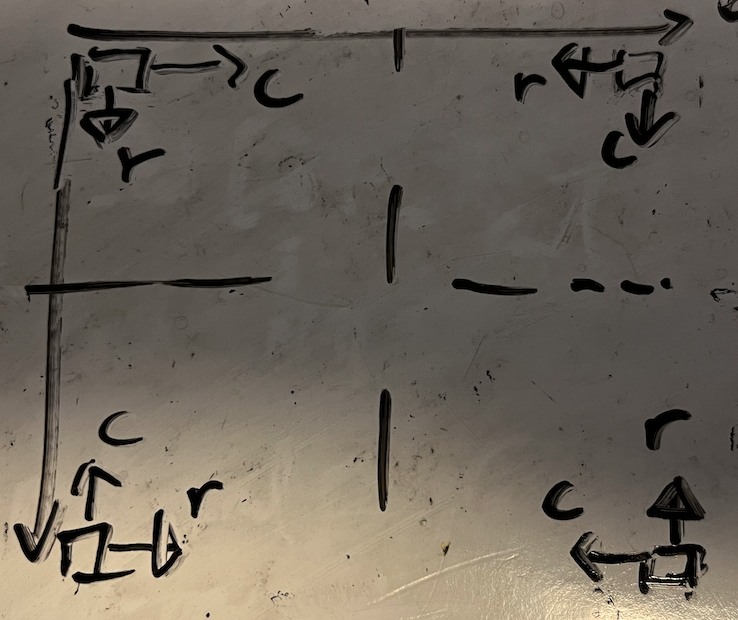 c
r
r
c
c
r
r
c